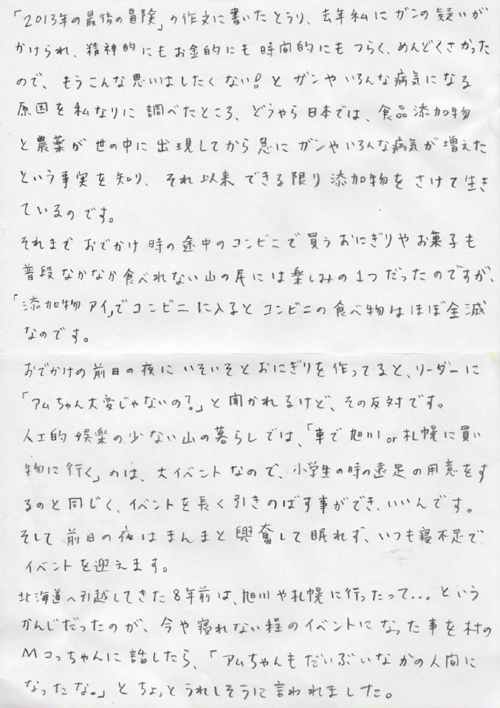 「2013年の最後の冒険」の作文に書いたとうり、去年私にガンの疑いが
かけられ、精神的にもお金的にも時間的にもつらく、めんどくさかった
ので、もうこんな思いはしたくない！とガンやいろんな病気になる
原因を私なりに調べたところ、どうやら日本では、食品添加物
と農薬が世の中に出現してから急にガンやいろんな病気が増えた
という事実を知り、それ以来できる限り添加物をさけて生き
ているのです。
それまでおでかけ時の途中のコンビニで買うおにぎりやお菓子も
普段なかなか食べれない山の民には楽しみの1つだったのですが、
「添加物アイ」でコンビニに入るとコンビニの食べ物はほぼ全滅
なのです。
おでかけの前日の夜にいそいそとおにぎりを作ってると、リーダーに
「アムちゃん大変じゃないの？」と聞かれるけど、その反対です。
人工的娯楽の少ない山の暮らしでは、「車で旭川or札幌に買い
物に行く」のは、大イベントなので、小学生の時の遠足の用意をす
るのと同じく、イベントを長く引きのばす事ができ、いいんです。
そして前日の夜はまんまと興奮して眠れず、いつも寝不足で
イベントを迎えます。
北海道へ引越してきた8年前は、旭川や札幌に行ったって…という
かんじだったのが、今や寝れない程のイベントになった事を村の
Mコっちゃんに話したら、「アムちゃんもだいぶいなかの人間に
なったな。」とちょっとうれしそうに言われました。